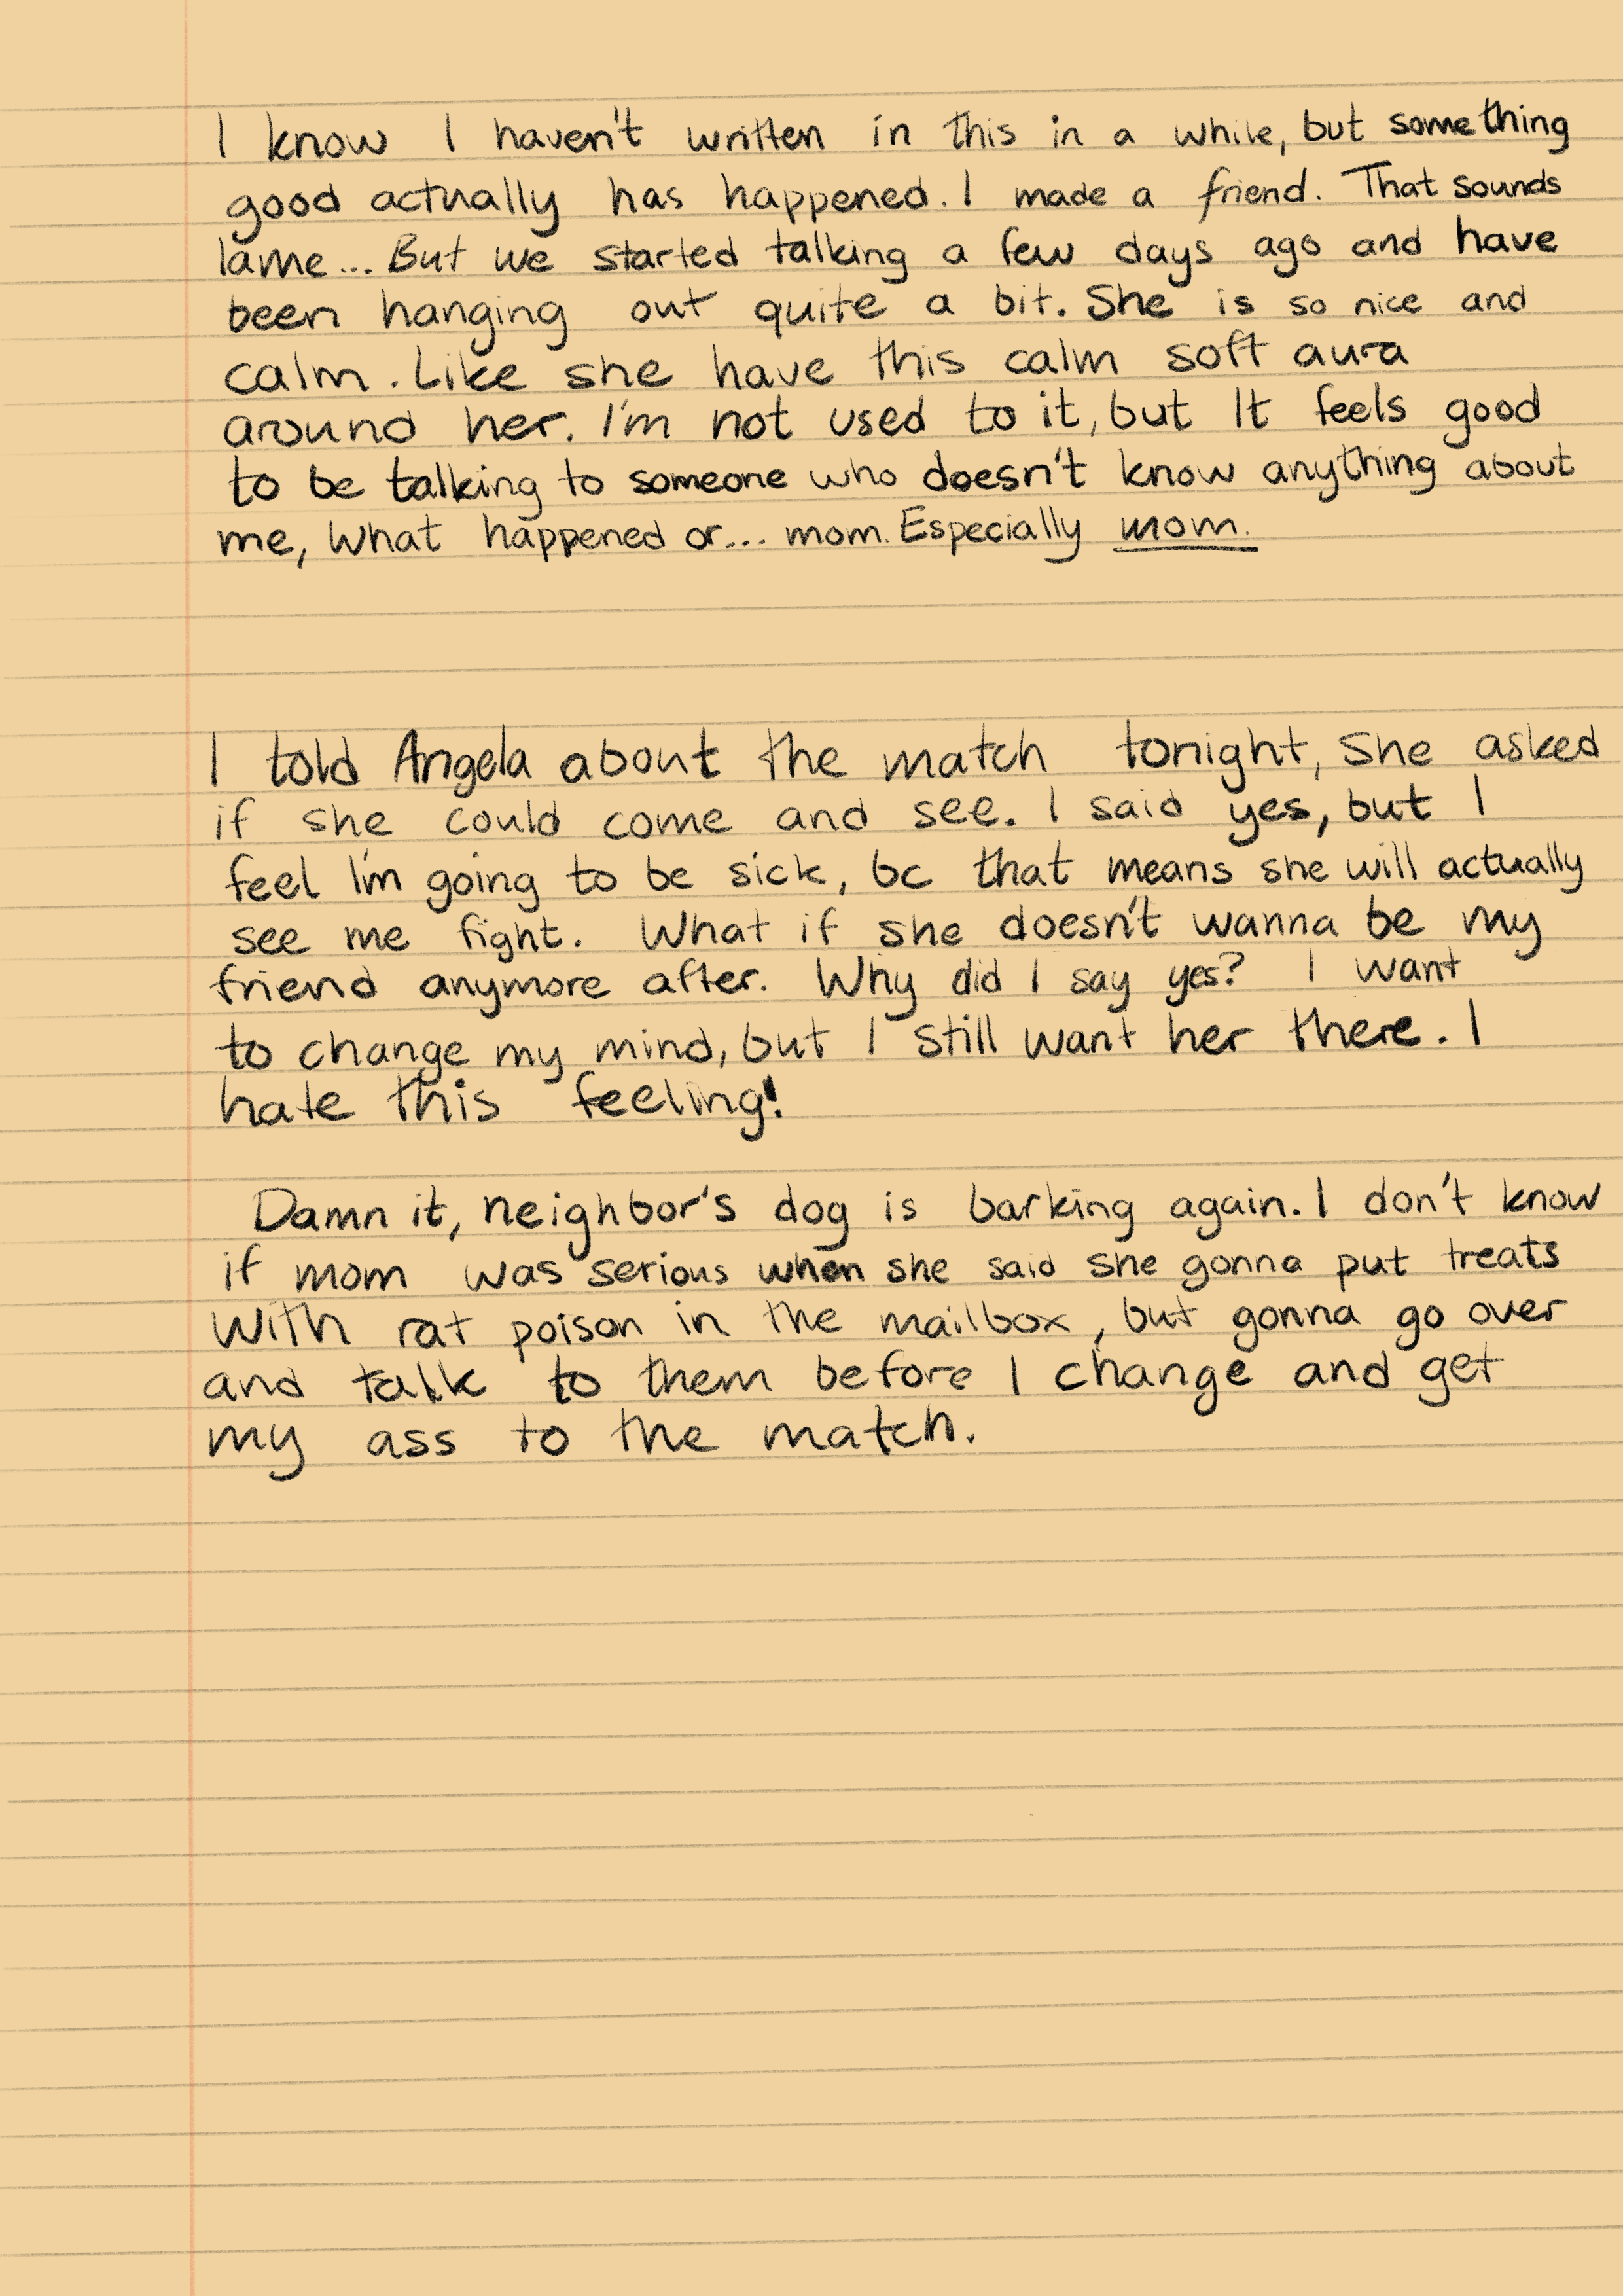 I know I haven't written in this in a while, but something
good actually has happened. I made a friend. That sounds
lame... But we started talking a few days ago and have
been hanging out quite a bit. She is so nice and
calm. Like she have this calm soft aura
around her. I'm not used to it, but It feels good
to be talking to someone who doesn't know anything about
me, What happened or... mom. Especially mom.
I told Angela about the match tonight, She asked
if she could come and see. I said yes, but I
feel I'm going to be sick, bc that means she will actually
see me fight. What if she doesn't wanna be my
friend anymore after. Why did I say yes? I want
to change my mind, but I still want her there. I
hate this feeling!
Damn it, neighbor's dog is barking again. I don't know
if mom was serious when she said she gonna put treats
with rat poison in the mailbox, but gonna go over
and talk to them before I change and get
my ass to the match.